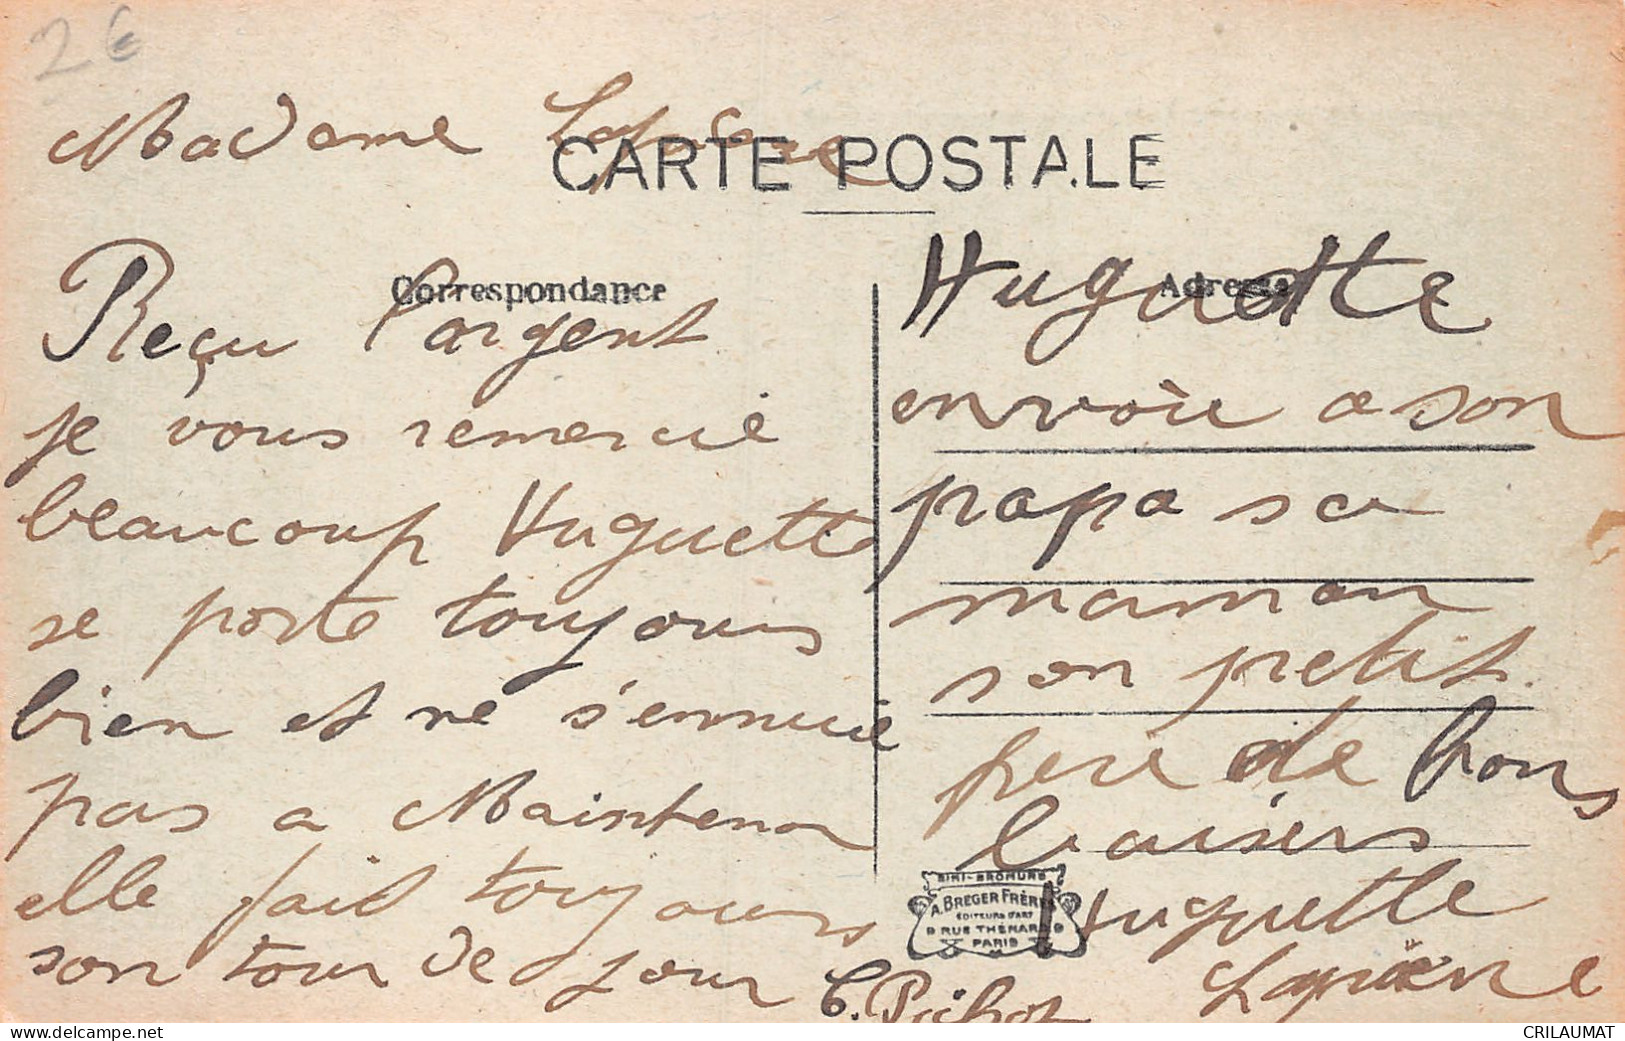 2€
Madame
CARTE POSTALE
Correspondance
Reçu l'argent
je vous remercie
beaucoup Huguette
se porte toujours
bien et ne s'ennuie
pas a Maintenan
elle fait toujours
son tour de jour
Adresse
Huguette
envoie a son
papa sa
maman
son petit
pere de bons
baisers
Huguette
SIMI-BROMURE
A. BREGER FRÈRES
ÉDITEURS D'ART
9 RUE THÉNARD 9
PARIS
www.delcampe.net
CRILAUMAT